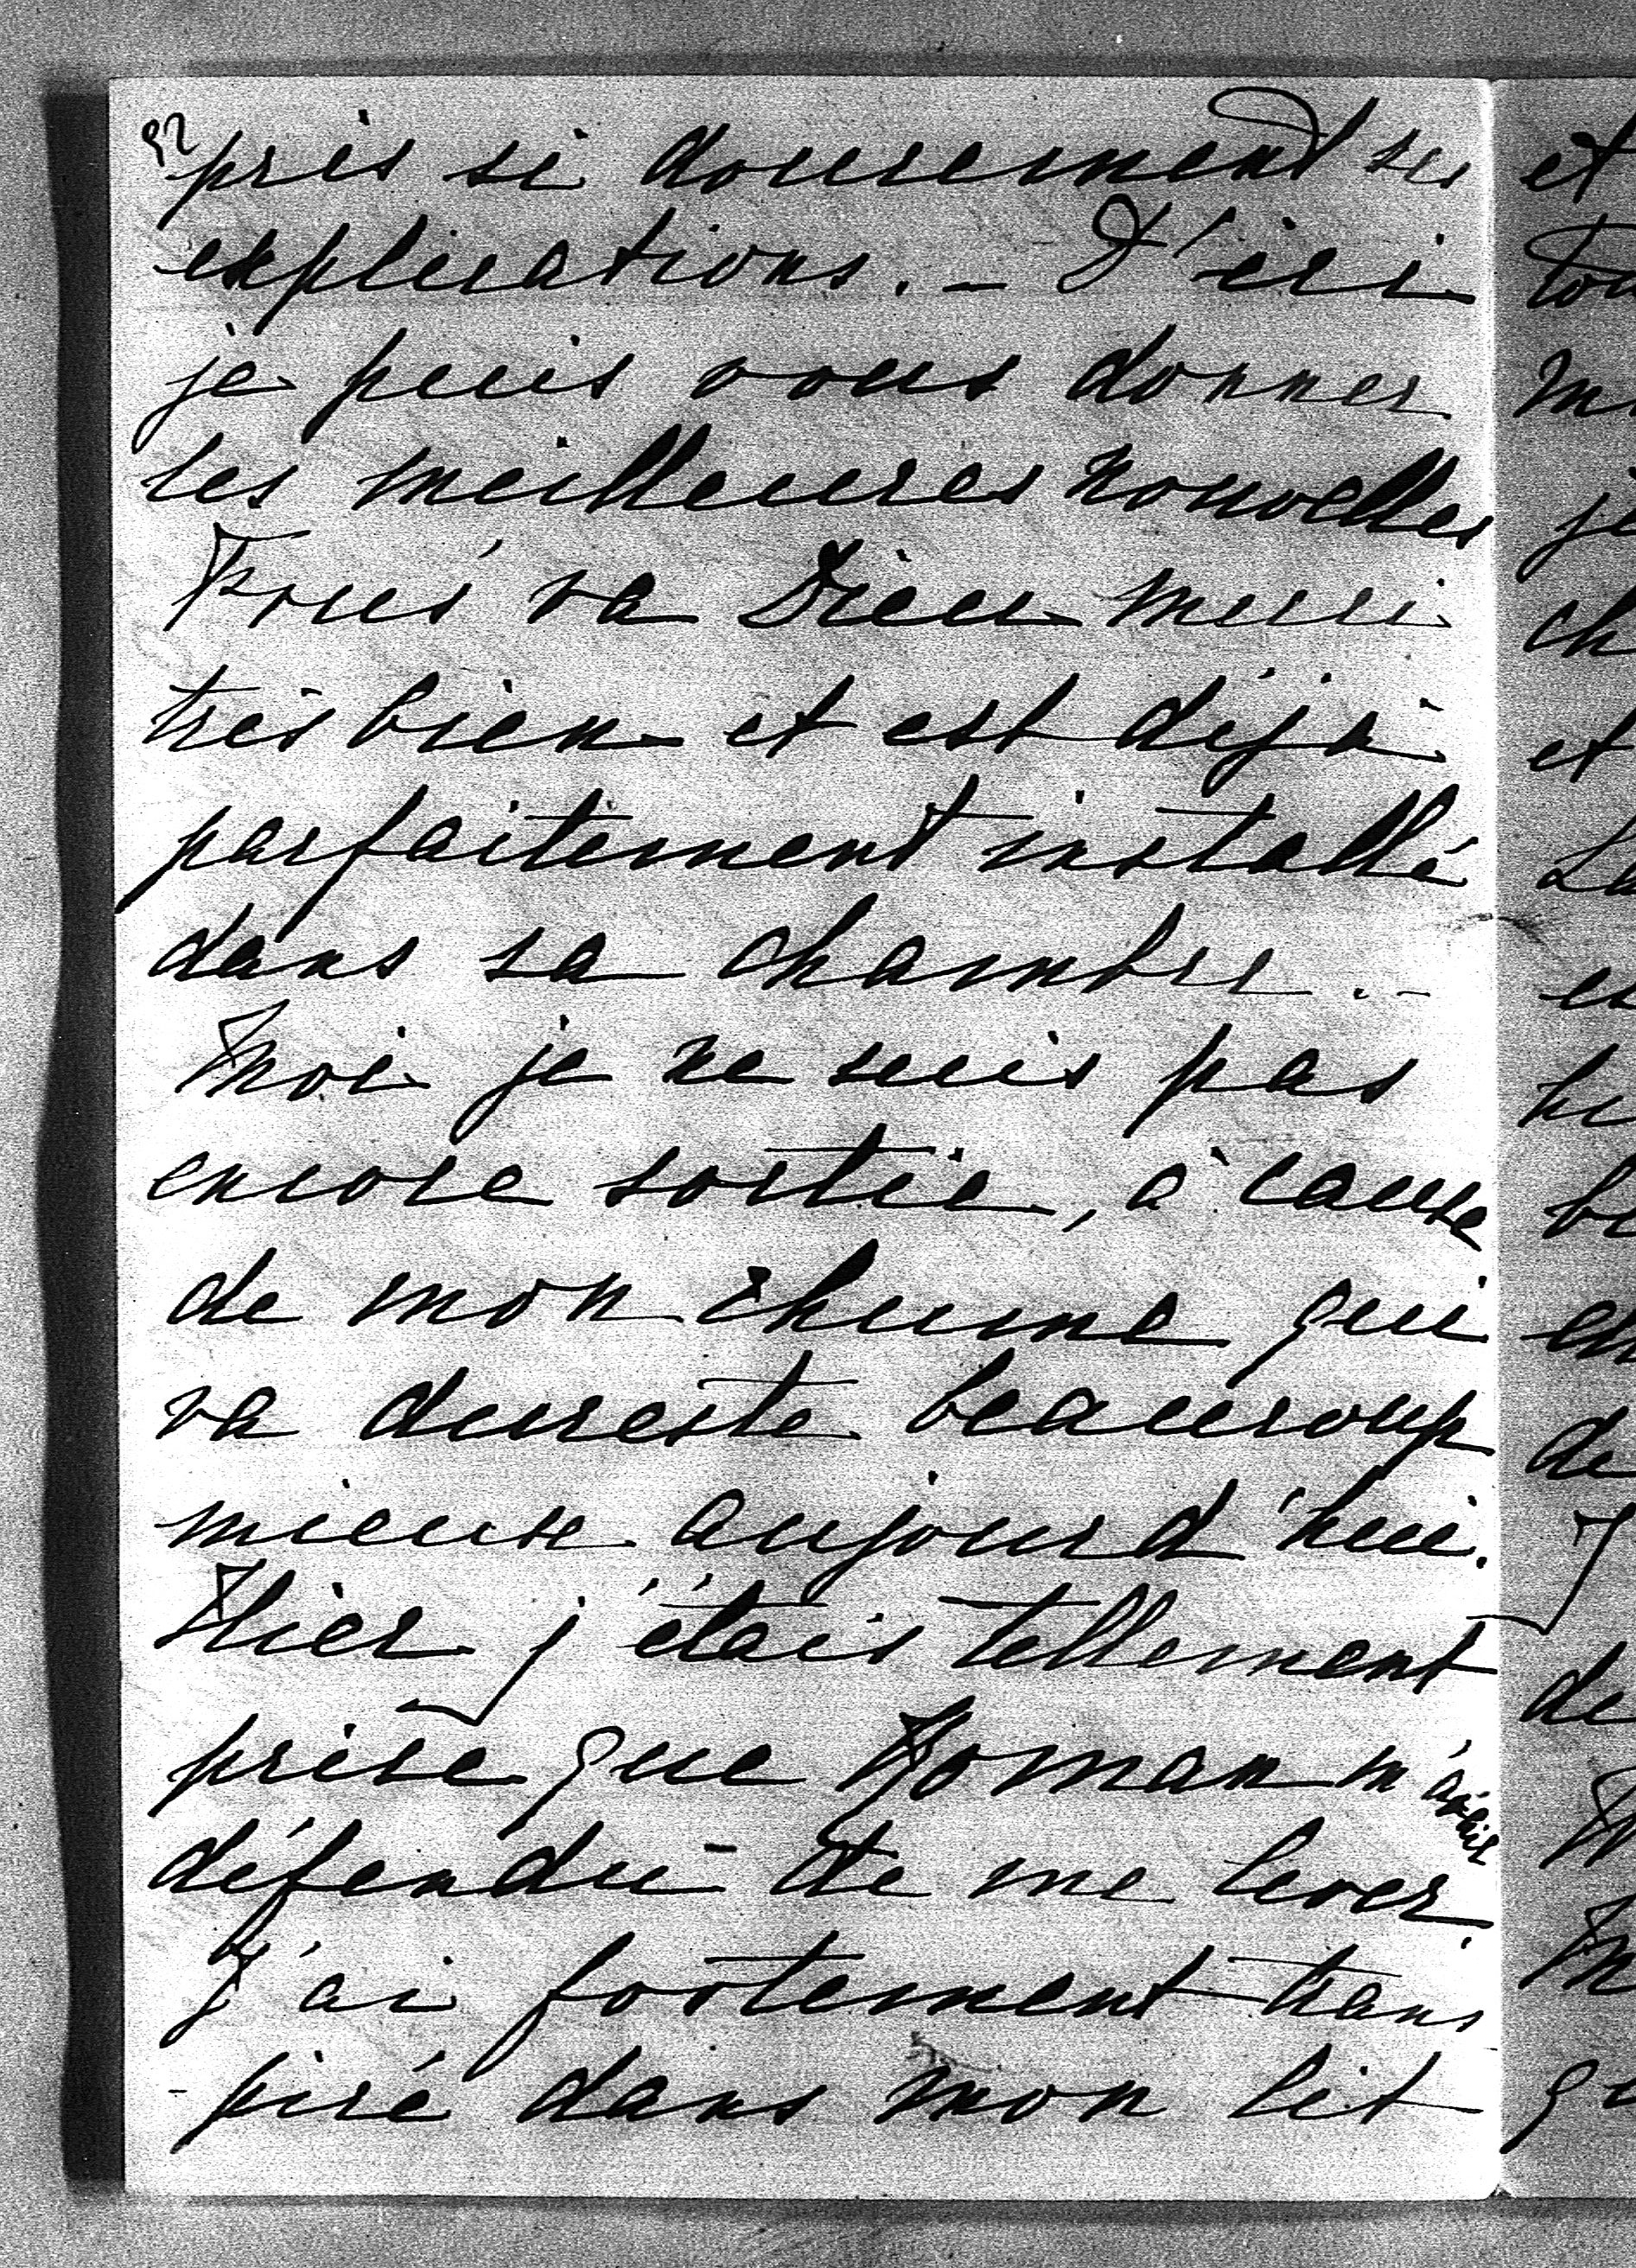 92
pris si doucement ses
explications. - D'ici
je puis vous donner
les meilleures nouvelles
va Dieu merci
très bien et est déjà
parfaitement installé
dans sa chambre. -
Moi je ne suis pas
encore sortie, à cause
de mon rhume qui
va dureste beaucoup
mieux aujourd'hui.
Hier j'étais tellement
prise que Roman m'avait
défendu de me lever.
J'ai fortement trans
-piré dans mon lit